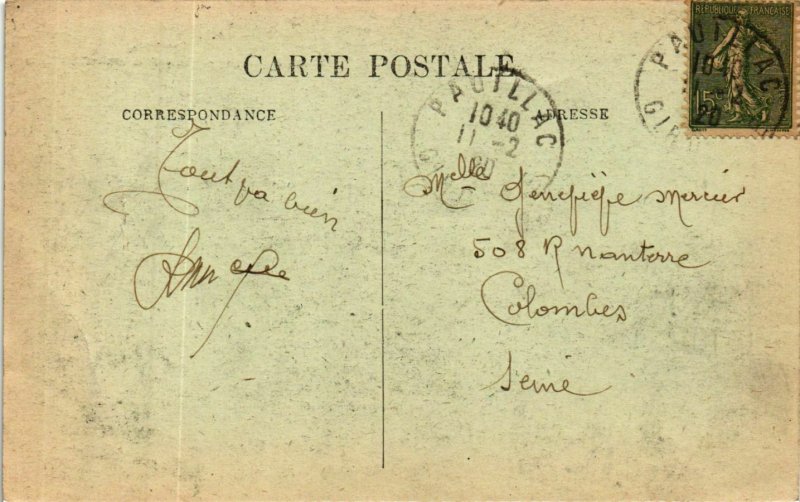 CARTE POSTALE
CORRESPONDANCE
ADRESSE
RÉPUBLIQUE FRANÇAISE
15c
PAUILLAC
10 40
20
GIR
PAUILLAC
10 40
11 -2
20
Tout va bien
Melle Geneviève Mercier
508 R Nanterre
Colombes
Seine